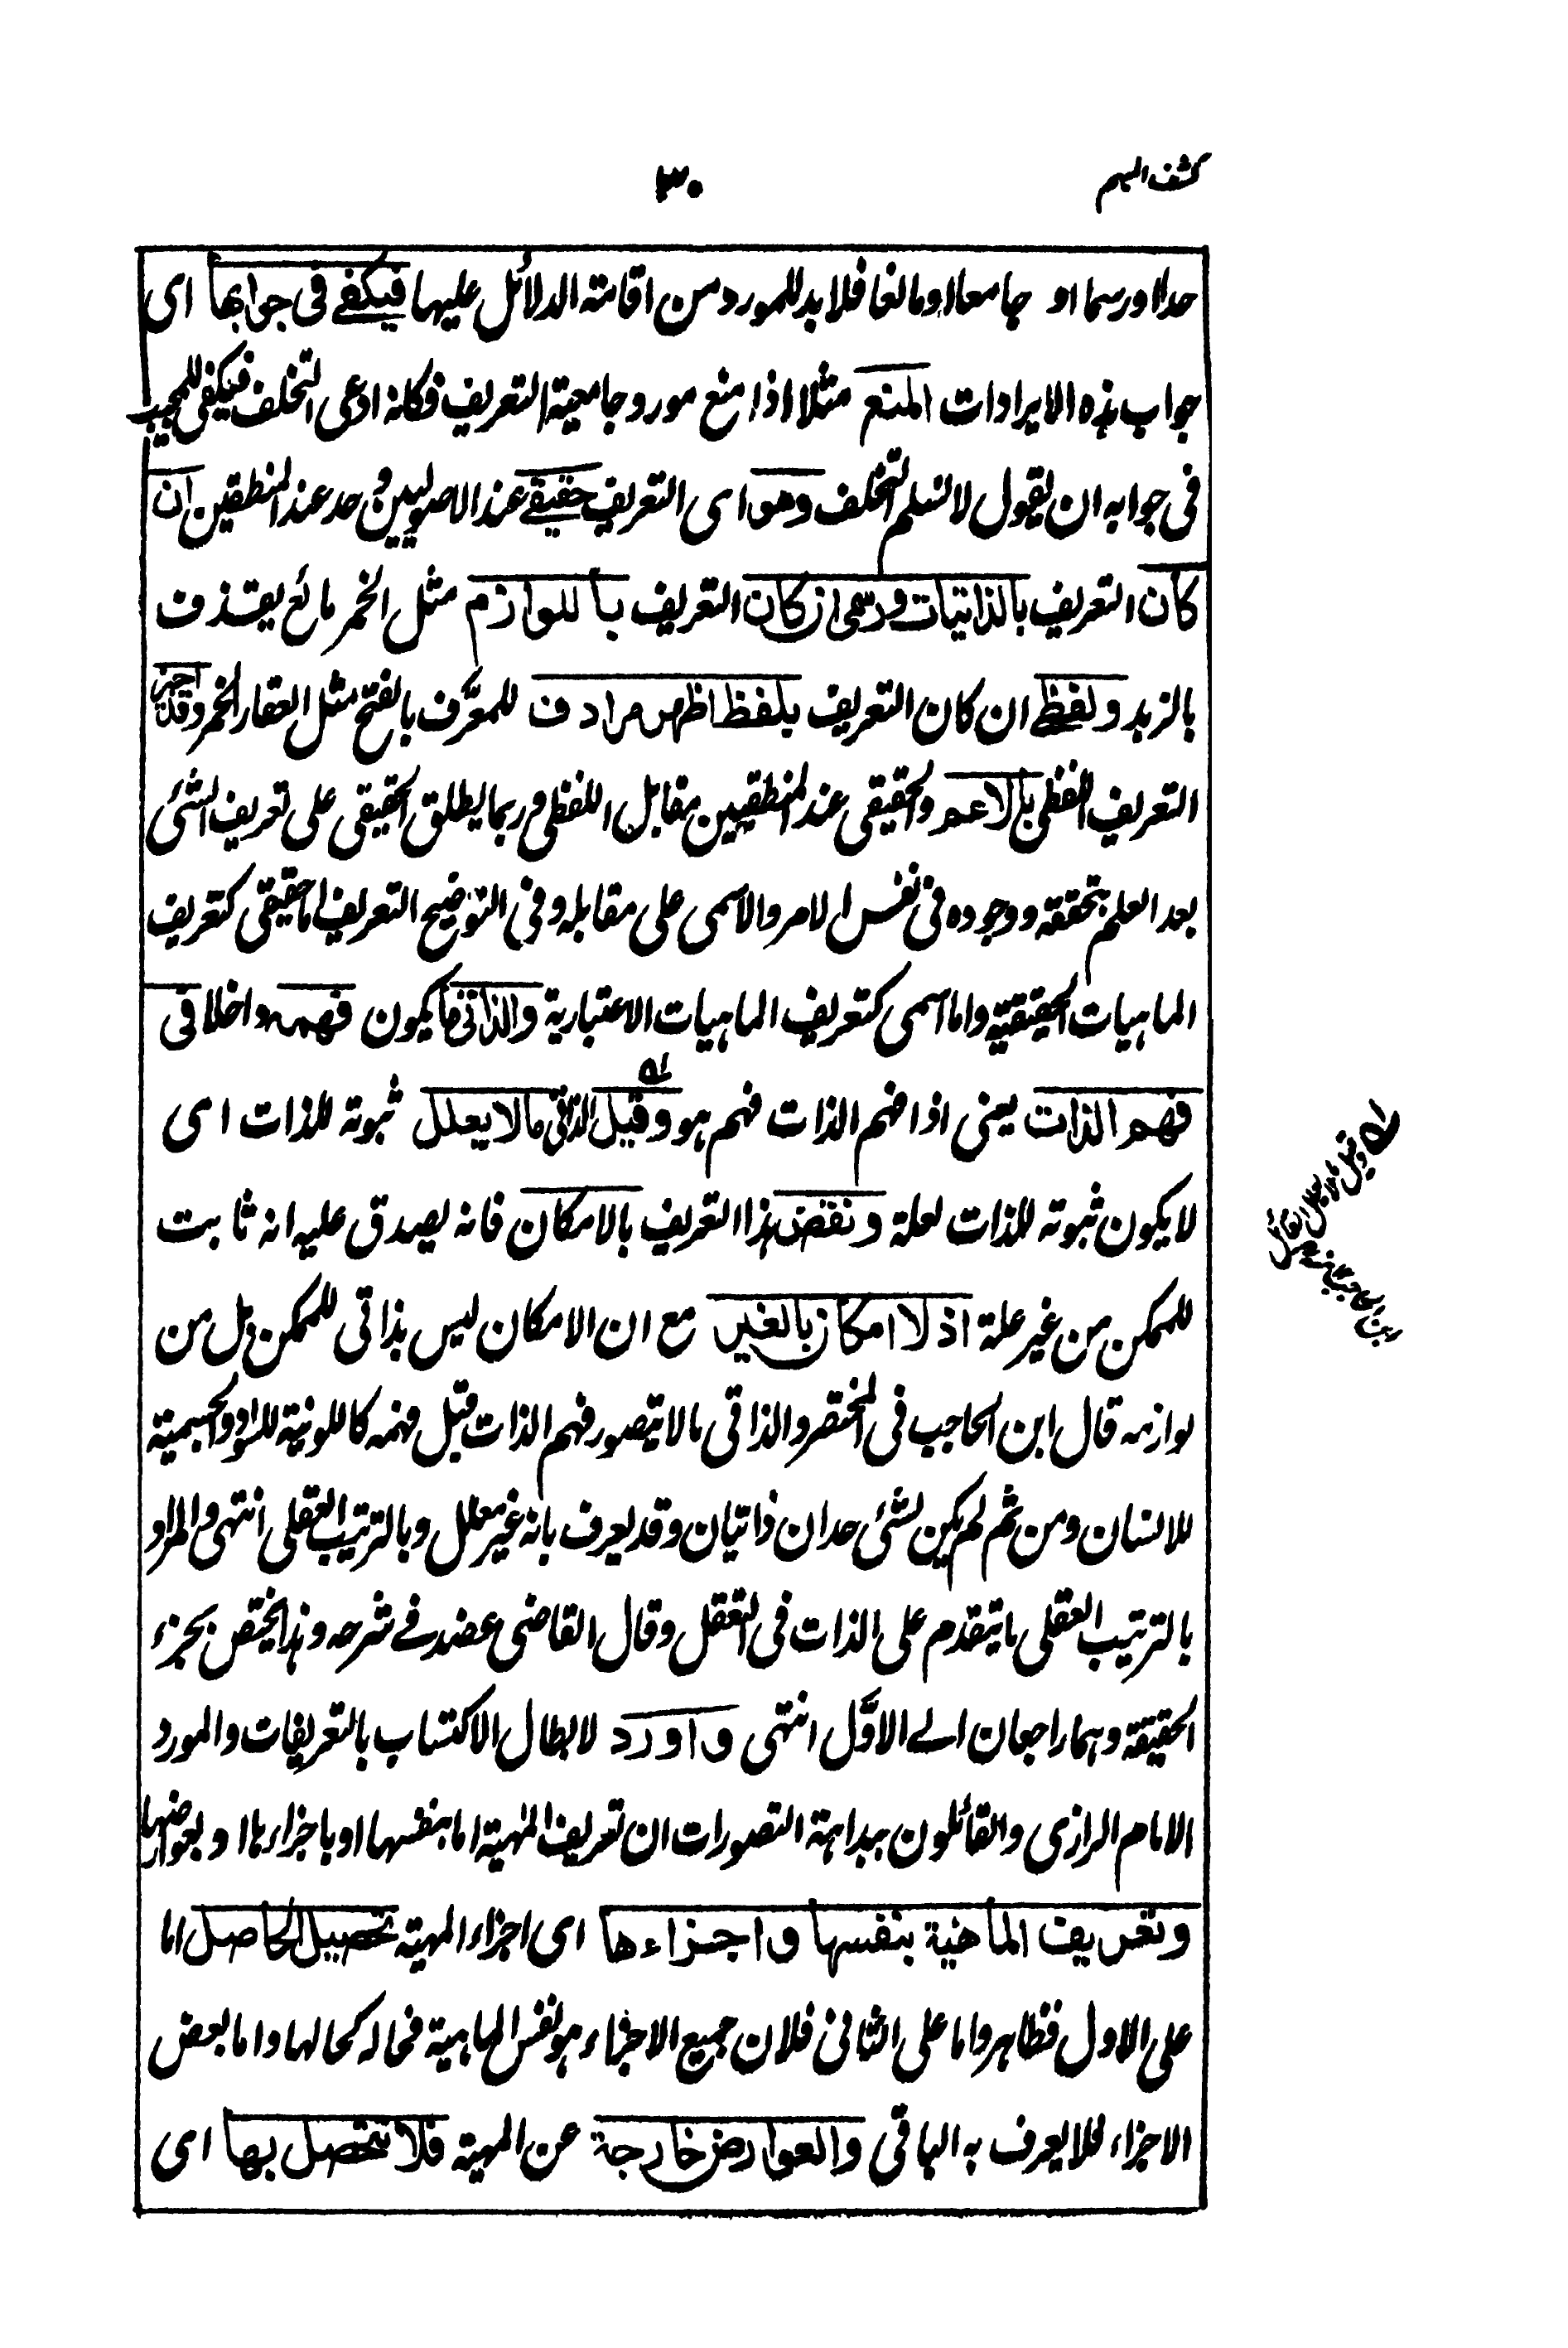 كشف المبهم
٣٠
حدا او رسما او جامعا او مانعا فلا بد للمورد من اقامته الدلائل عليها فيكفى فى جوابها اى
جواب هذه الايرادات المنع مثلا اذا منع مورد جامعية التعريف فكانه ادعى التخلف فيكفى للمجيب
فى جوابه ان يقول لا نسلم التخلف وهو اى التعريف حقيقى عند الاصوليين وحد عند المنطقين ان
كان التعريف بالذاتيات ورسمى ان كان التعريف باللوازم مثل الخمر مائع يقذف
بالزبد ولفظى ان كان التعريف بلفظ اظهر مرادف للمعرَّف بالفتح مثل العقار الخمر وقد اجيز
التعريف اللفظى بالاعم والحقيقى عند المنطقيين مقابل اللفظى وربما يطلق الحقيقى على تعريف الشئ
بعد العلم بتحققه ووجوده فى نفس الامر والاسمى على مقابله وفى التوضيح التعريف اما حقيقى كتعريف
الماهيات الحقيقية واما اسمى كتعريف الماهيات الاعتبارية والذاتى ما يكون فهمه داخلا فى
فهم الذات يعنى اذا فهم الذات فهم هو وقيل الذاتى ما لا يعلل ثبوته للذات اى
لا يكون ثبوته للذات لعلة ونقض هذا التعريف بالامكان فانه يصدق عليه انه ثابت
للممكن من غير علة اذ لا امكان بالغير مع ان الامكان ليس بذاتى للممكن بل من
لوازمه قال ابن الحاجب فى المختصر والذاتى ما لا يتصور فهم الذات قبل فهمه كاللونية للسواد والجسمية
للانسان ومن ثم لم يكن لشئ حدان ذاتيان وقد يعرف بانه غير معلل وبالترتيب العقلى انتهى والمراد
بالترتيب العقلى ما يتقدم على الذات فى التعقل وقال القاضى عضد فى شرحه وهذا يختص بجزء
الحقيقة وهما راجعان الى الاوَّل انتهى واورد لابطال الاكتساب بالتعريفات والمورد
الامام الرازى والقائلون ببداهة التصورات ان تعريف المهية اما بنفسها او باجزاءها او بعوارضها
وتعريف الماهية بنفسها واجزاءها اى اجزاء المهية تحصيل الحاصل اما
على الاول فظاهر واما على الثانى فلان جميع الاجزاء هو نفس الماهية فحاله كحالها واما بعض
الاجزاء فلا يعرف به الباقى والعوارض خارجة عن المهية فلا تتحصل بها اى
وقيل ما لا يعلل القائل
ابن الحاجب